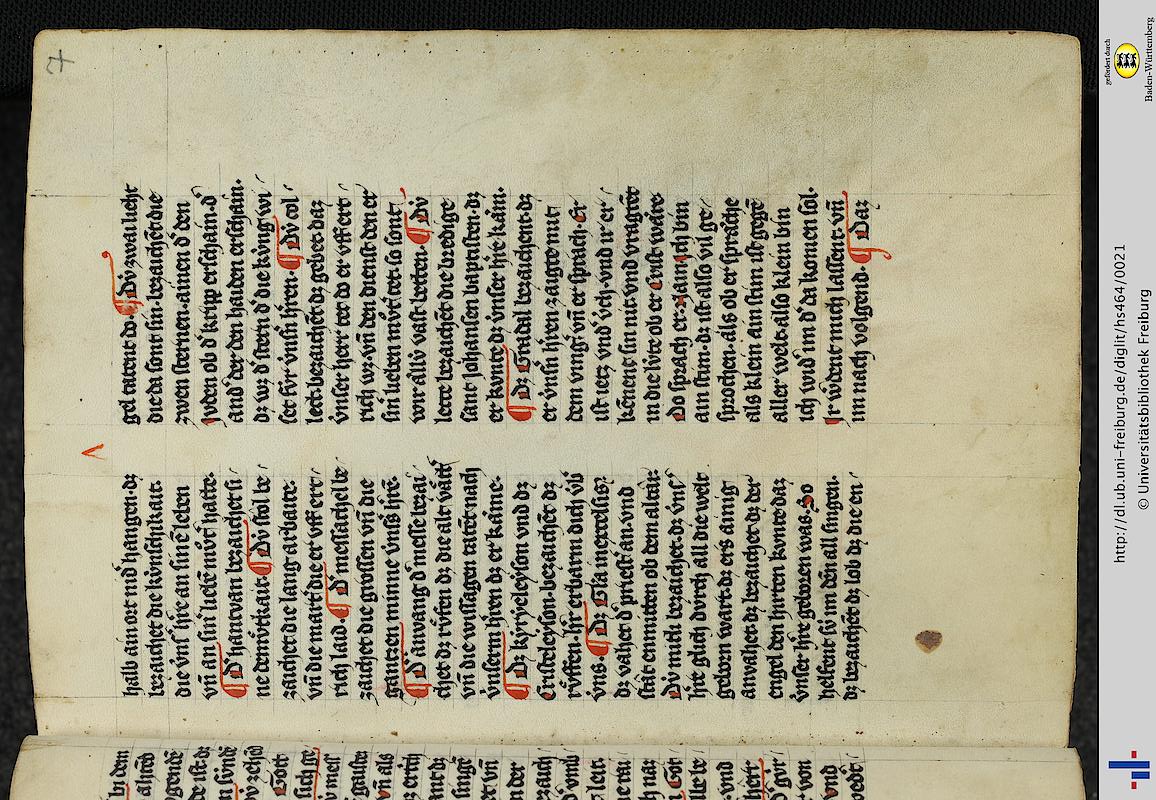 7
V
halb an ort nid hangen · dz
bezaichet die kv́nschkait ·
die vnsˀ hˀre an sinē leben
vn̄ an sinˀ liebē mv̊tˀ hatte ·
¶ Dˀ hantvan bezaichet si
ne demv̊tkait · ¶ Dv́ stol be
zaichet die lang arbaite ·
vn̄ die martˀ die er vff ert
rich laid · ¶ Dˀ messachel be
zaichet die grossen vn̄ die
gantzen minne vnsˀs hˀrē ·
¶ Dˀ anvang dˀ messe bezai
chet dz rv̊fen dz die alt vaͤttˀ
vn̄ die wissagen tatēt nach
vnserm hˀren dz er kaͤme ·
¶ Dz kyryeleyson vnd dz
Cristeleyson · bezaichēt dz
rv̊ffen · hˀr erbarm dich vbˀ
vns · ¶ Dz Gl'ia in excelsis
dz vahet dˀ priestˀ an vnd
stat enmitten ob dem altar ·
Dv́ mich bezaichet · dz vnsˀ
hˀre glich dvrch all die welt
geborn wart · dz ers ainig
anvahet dz bezaichet dz der
engel den hirten kvnte daz
vnser hˀre geboren was · So
helfent sv́ im dēn all singen ·
dz bezaichet dz lob dz die en
gel tatent do · ¶ Dv́ zwai liecht
die da sont sin bezaichēt die
zwen sternen · ainen dˀ den
Jvden ob dˀ kripp erschain · dˀ
andˀ der den haiden erschain ·
dz wz dˀ stern dˀ die kv́ng wi
ser fv́r vnsˀn hˀren · ¶ Dv́ col
lect bezaichet dz gebet daz
vnser herr tet do er vff ert
rich wz · vn̄ den dienst den er
sinˀ lieben mv̊tˀ tet · so sont
wir alliv́ vast betten · ¶ Dv́
letze bezaichet die bredige
sant Johansen baptisten · dz
er kvnte dz vnser hˀre kam ·
¶ Dz Gradal bezaichent dz
er vnsˀn hˀren zaigte mit
dem vingˀ vn̄ er sprach · Er
ist ietz vndˀ v́ch · vnd ir er
kēnent sin nut vnd vragtēt
in die lv́te ob er Crist ware
Do sprach er · nain ich bin
ain stim · dz ist also vil ge
sprochen · als ob er spraͤche
als klein ain stim ist gegē
aller welt · also klein bin
ich wˀdˀ im dˀ da komen sol ·
Ir wdent mich lassent vn̄
im nach volgend · ¶ Daz
gefördert durch
Baden-Württemberg
http://dl.ub.uni-freiburg.de/diglit/hs464/0021
© Universitätsbibliothek Freiburg